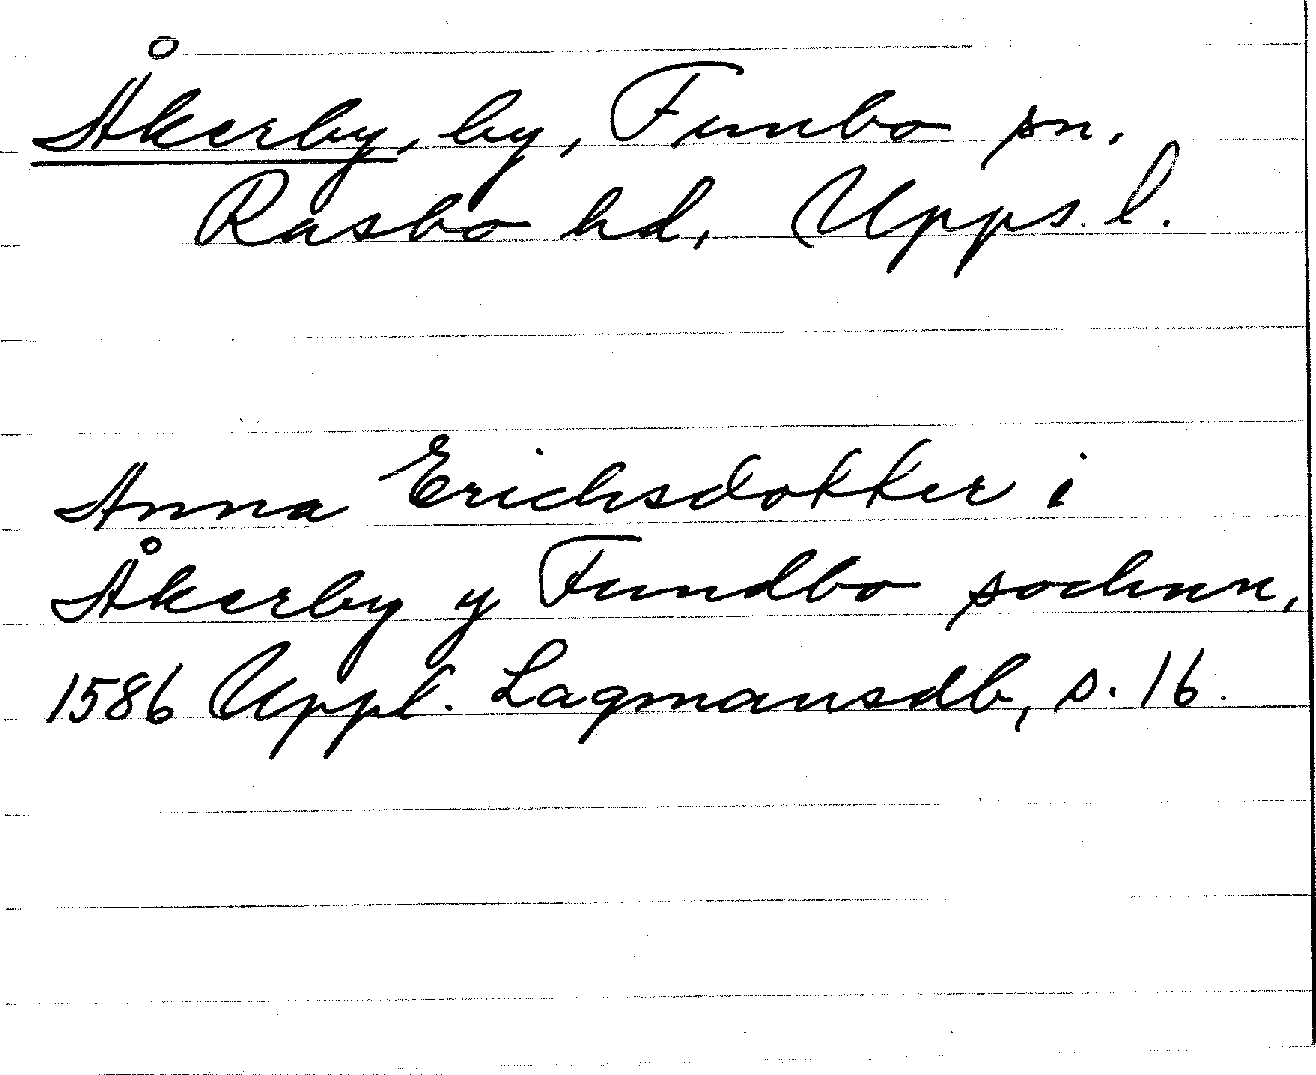 Åkerby, by, Funbo sn,
Rasbo hd, Upps. l.
Anna Erichsdotter i
Åkerby y Fundbo sochnn,
1586 Uppl. Lagmansdb, s. 16.